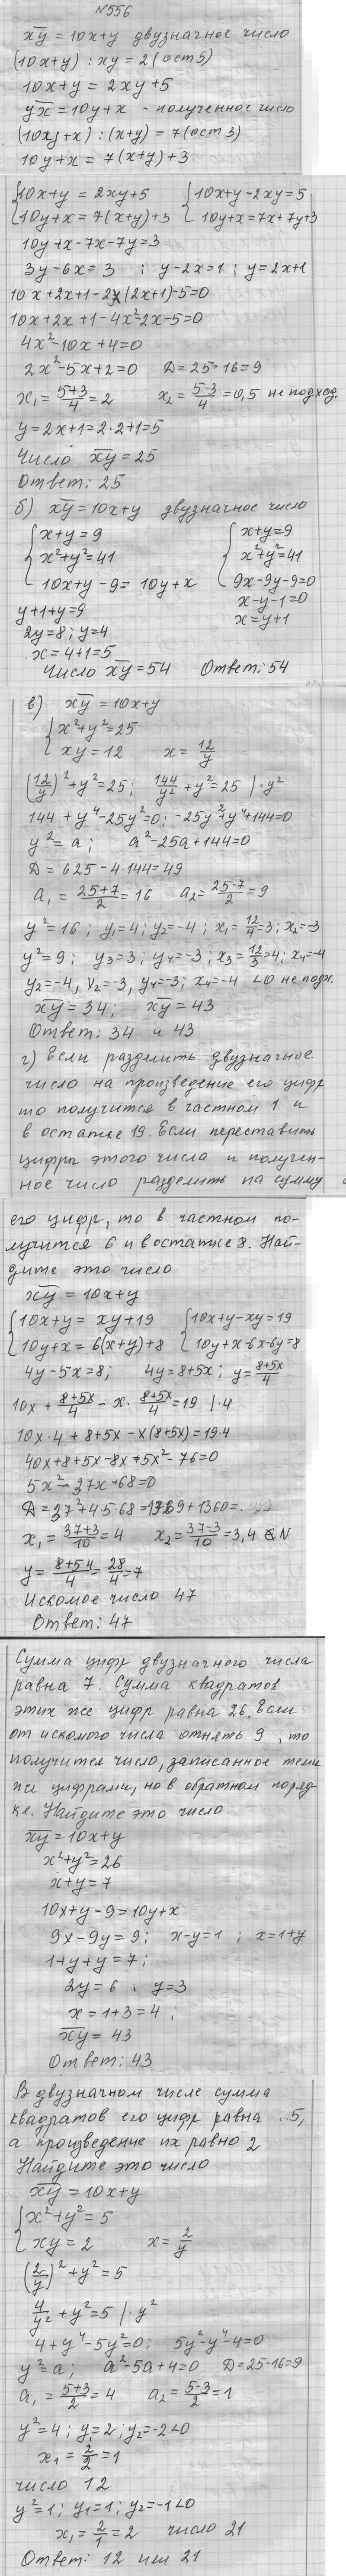 №556
x̅y̅ = 10x+y двузначное число
(10x+y) : xy = 2 (ост 5)
10x+y = 2xy+5
y̅x̅ = 10y+x - полученное число
(10y+x) : (x+y) = 7 (ост 3)
10y+x = 7(x+y)+3
{10x+y = 2xy+5 {10x+y-2xy=5
10y+x=7(x+y)+3 10y+x=7x+7y+3
10y+x-7x-7y=3
3y-6x=3 ; y-2x=1 ; y=2x+1
10x+2x+1-2x(2x+1)-5=0
10x+2x+1-4x²-2x-5=0
4x²-10x+4=0
2x²-5x+2=0 D=25-16=9
x₁=(5+3)/4=2 x₂=(5-3)/4=0,5 не подход.
y=2x+1=2·2+1=5
Число x̅y̅=25
Ответ: 25
б) x̅y̅=10x+y двузначное число
{x+y=9 {x+y=9
x²+y²=41 x²+y²=41
10x+y-9=10y+x 9x-9y-9=0
y+1+y=9 x-y-1=0
2y=8; y=4 x=y+1
x=4+1=5
Число x̅y̅=54 Ответ: 54
в) x̅y̅=10x+y
{x²+y²=25
xy=12 x=12/y
(12/y)²+y²=25; 144/y²+y²=25 |·y²
144+y⁴-25y²=0; -25y²+y⁴+144=0
y²=a; a²-25a+144=0
D=625-4·144=49
a₁=(25+7)/2=16 a₂=(25-7)/2=9
y²=16; y₁=4; y₂=-4; x₁=12/4=3; x₂=-3
y²=9; y₃=3; y₄=-3; x₃=12/3=4; x₄=-4
y₂=-4, x₂=-3, y₄=-3; x₄=-4 <0 не подх.
x̅y̅=34; x̅y̅=43
Ответ: 34 и 43
г) Если разделить двузначное
число на произведение его цифр
то получится в частном 1 и
в остатке 19. Если переставить
цифры этого числа и получен-
ное число разделить на сумму
его цифр, то в частном по-
лучится 6 и в остатке 8. Най-
дите это число
x̅y̅=10x+y
{10x+y=xy+19 {10x+y-xy=19
10y+x=6(x+y)+8 10y+x-6x-6y=8
4y-5x=8; 4y=8+5x; y=(8+5x)/4
10x+(8+5x)/4-x·(8+5x)/4=19 |·4
10x·4+8+5x-x(8+5x)=19·4
40x+8+5x-8x-5x²-76=0
5x²-37x+68=0
D=37²+4·5·68=1369+1360=
x₁=(37+3)/10=4 x₂=(37-3)/10=3,4 ∉N
y=(8+5·4)/4=28/4=7
Искомое число 47
Ответ: 47
Сумма цифр двузначного числа
равна 7. Сумма квадратов
этих же цифр равна 26. Если
от искомого числа отнять 9, то
получится число, записанное теми
же цифрами, но в обратном поряд-
ке. Найдите это число
x̅y̅=10x+y
x²+y²=26
x+y=7
10x+y-9=10y+x
9x-9y=9; x-y=1 ; x=1+y
1+y+y=7;
2y=6 ; y=3
x=1+3=4;
x̅y̅=43
Ответ: 43
В двузначном числе сумма
квадратов его цифр равна 5,
а произведение их равно 2
Найдите это число
x̅y̅=10x+y
{x²+y²=5
xy=2 x=2/y
(2/y)²+y²=5
4/y²+y²=5 |·y²
4+y⁴-5y²=0; 5y²-y⁴-4=0
y²=a; a²-5a+4=0 D=25-16=9
a₁=(5+3)/2=4 a₂=(5-3)/2=1
y²=4; y=2; y₂=-2<0
x₁=2/2=1
число 12
y²=1; y₁=1; y₂=-1<0
x₁=2/1=2 число 21
Ответ: 12 или 21